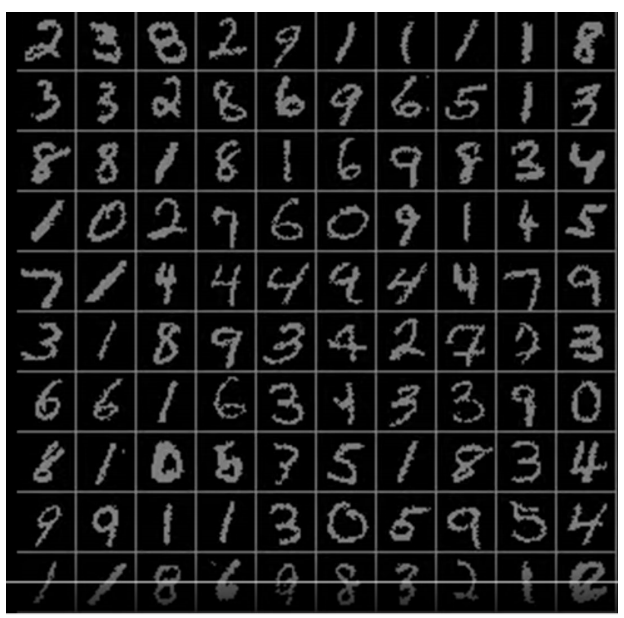 2 3 8 2 9 1 1 1 1 8
3 3 2 8 6 9 6 5 1 3
8 8 1 8 1 6 9 8 3 4
1 0 2 7 6 0 9 1 4 5
7 1 4 4 4 9 4 4 7 9
3 1 8 9 3 4 2 7 3
6 6 1 6 3 3 3 9 0
8 1 0 5 7 5 1 8 3 4
9 9 1 1 3 0 5 9 5 4
1 1 8 6 9 8 3 2 1